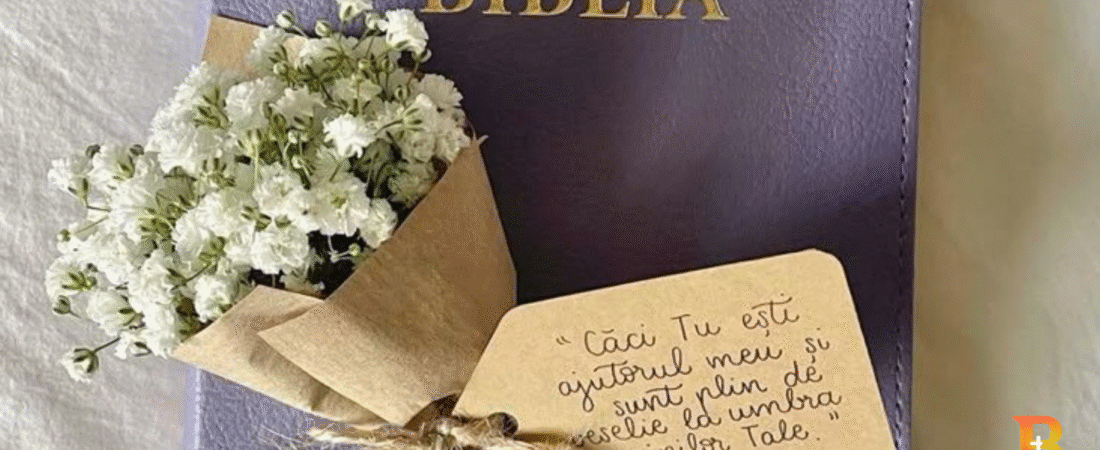 BIBLIA
“Căci Tu ești
ajutorul meu și
sunt plin de
veselie la umbra
Tale.”